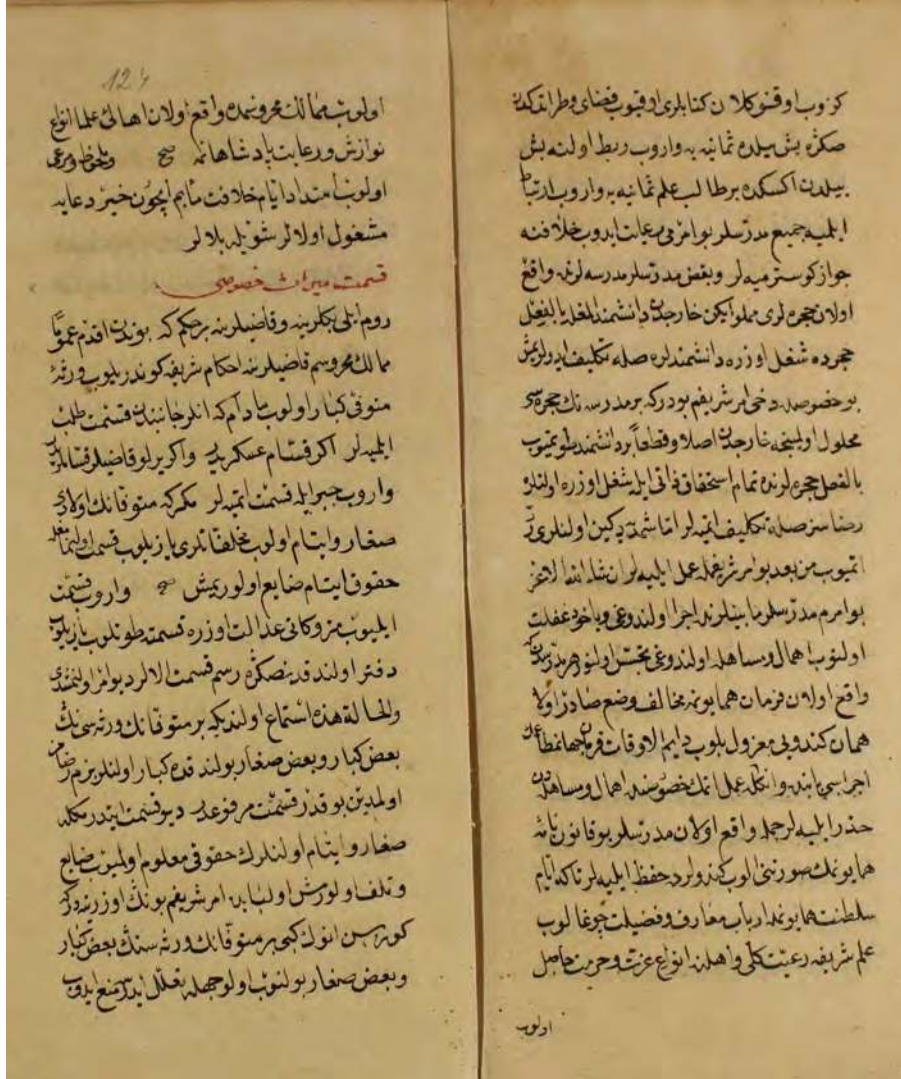 كزوب اوقنوكلان كتابلرى اوقيوب فضاى وطراندكدن
صكره بش ييلده ثمانيه يه واروب ربط اولنه بش
ييلدن اكسكده بر طالب علم ثمانيه يه واروب ارتباط
ايلميه جميع مدرسلر بو امرمى رعايت ايدوب خلافنه
جواز كوسترميه لر وبعض مدرسلر مدرسه لرنده واقع
اولان حجره لرى مملو ايكن خارجدن دانشمند المغله بالفعل
حجرده شغل اوزره دانشمندلره صله تكليف ايدرلرمش
بو خصوصده دخى امر شريفم بودركه بر مدرسه نك حجره سى
محلول اولمينجه خارجدن اصلا وقطعا دانشمند طوتميوب
بالفعل حجره لرنده تمام استحقاق ذاتى ايله شغل اوزره اولنلره
رضاسز صله تكليف ايتميه لر اما شمديه دكين اولنلرى رد
اتميوب من بعد بو امر شريفمله عمل ايليه لر ان شاء الله الاعز
بو امرم مدرسلر مابينلرنده اجرا اولندوغى وياخود غفلت
اولنوب اهمال ومساهله اولندوغى تجسس اولنور هر مدرسدن كه
واقع اولان فرمان همايونمه مخالف وضع صادر اولا
همان كندويى معزول بلوب دايم الاوقات فرمان جهانمطاعك
اجراسى بابنده وانكله عمل اتمك خصوصنده اهمال ومساهله دن
حذر ايليه لر جمله واقع اولان مدرسلر بو قانوننامه
همايونمك صورتنى الوب كندولرده حفظ ايليه لر تاكه ايام
سلطنت همايونمده ارباب معارف وفضيلت چوغالوب
علم شريفه رعبت كلى واهلنه انواع عزت وحرمت حاصل
اولوب
124
اولوب ممالك محروسه مده واقع اولان اهالى علما انواع
نوازش ورعايت پادشاهانه مه صح وملحوظ ومرعى
اولوب امتداد ايام خلافت مآبم ايچون خير دعايه
مشغول اولالر شويله بلالر
قسمت ميراث خصوصى
روم ايلى بكلرينه وقاضيلرينه بر حكم كه بوندن اقدم عموما
ممالك محروسه م قاضيلرينه احكام شريفه كوندريلوب ورثهٔ
متوفى كبار اولوب مادام كه انلر جانبندن قسمت طلب
ايليه لر اكر قسام عسكريدر واكر يرلو قاضيلر قساملريدر
واروب جبر ايله قسمت ايتميه لر مكر كه متوفانك اولادى
صغار وايتام اولوب مخلفاتلرى يازيلوب قسمت اولنمامغله
حقوق ايتام ضايع اولورمش صح واروب قسمت
ايليوب مزوكانى عدالت اوزره قسمته طوتلوب يازيلوب
دفتر اولندقدنصكره رسم قسمت الالر ديو امر اولنمشدى
والحالة هذه استماع اولندىكه بر متوفانك ورثه سى نك
بعض كبار وبعض صغار بولندقده كبار اولنلر بزم رضامز
اولمدين بو قدر قسمت مرفوعدر ديو قسمت ايتدرمكله
صغار وايتام اولنلرك حقوقى معلوم اولميوب ضايع
وتلف اولورمش اول بابده امر شريفم بونك اوزرينه دركه
كوره سن انوك كبى بر متوفانك ورثه سنك بعض كبار
وبعض صغار بولنوب اول وجهله تعلل ايدرك منع ايدوب